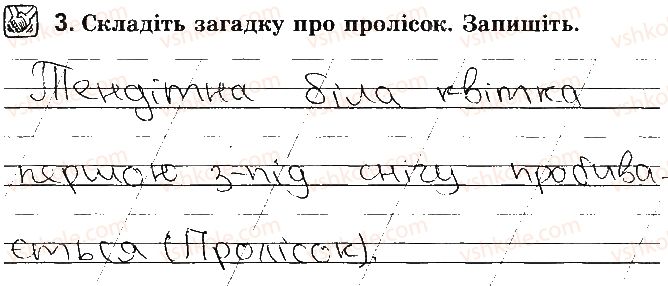 3. Складіть загадку про пролісок. Запишіть.
Тендітна біла квітка
першою з-під снігу пробива-
ється (Пролісок).